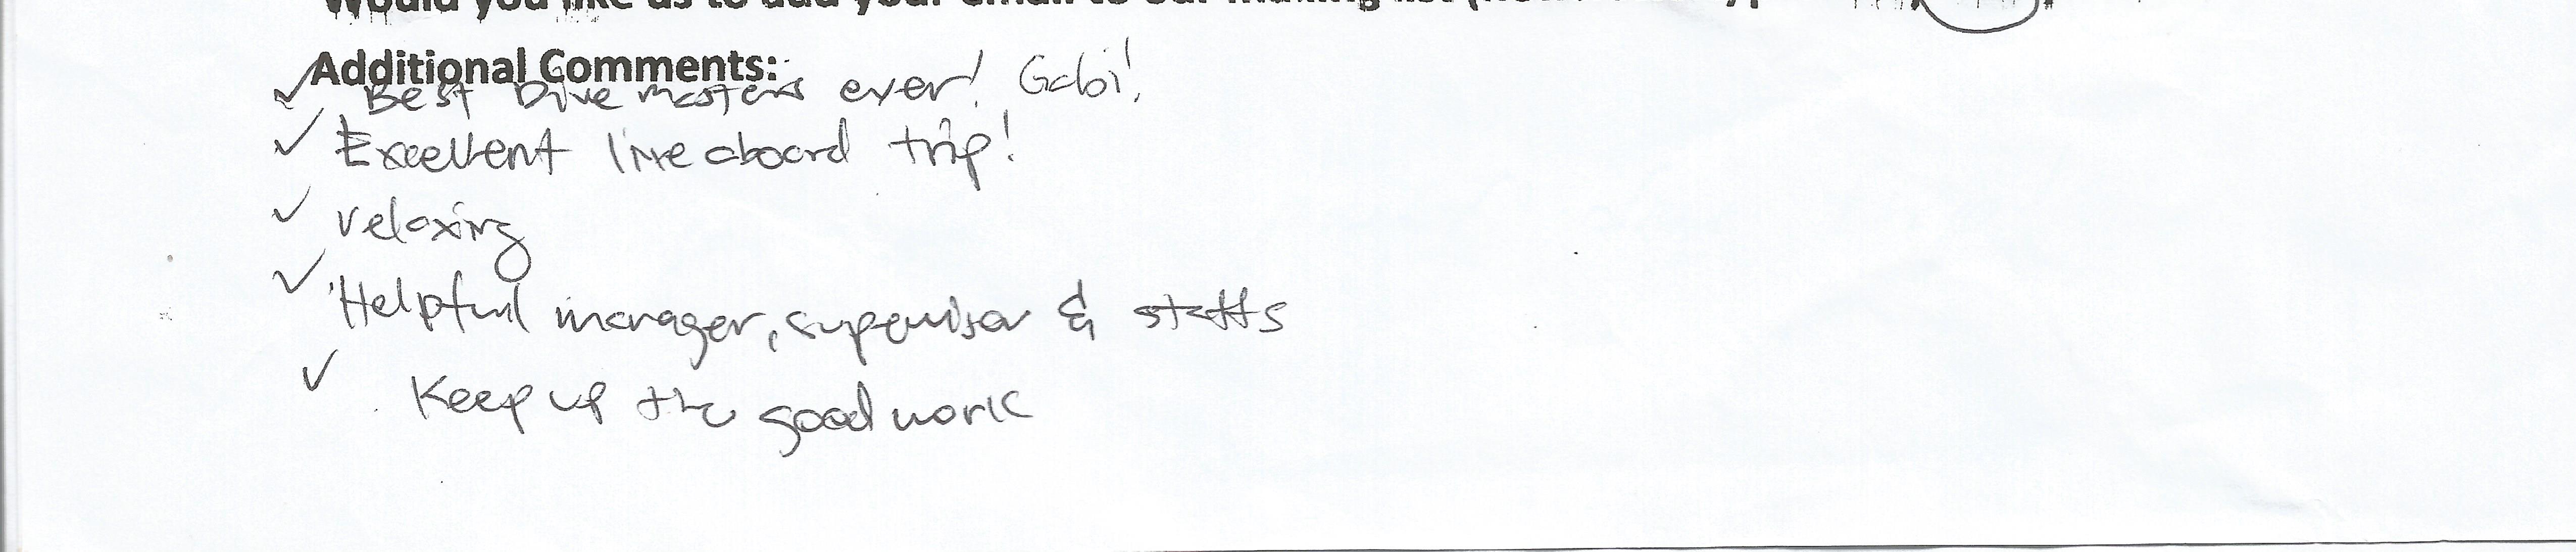 Would you like us to add your email to our mailing list
Additional Comments:
✓ Best Dive masters ever! Gabi!
✓ Excellent liveaboard trip!
✓ relaxing
✓ Helpful manager, supervisor & staffs
✓ Keep up the good work